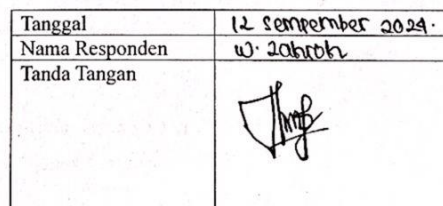 Tanggal 12 sempember 2024.
Nama Responden W. Zahroh
Tanda Tangan